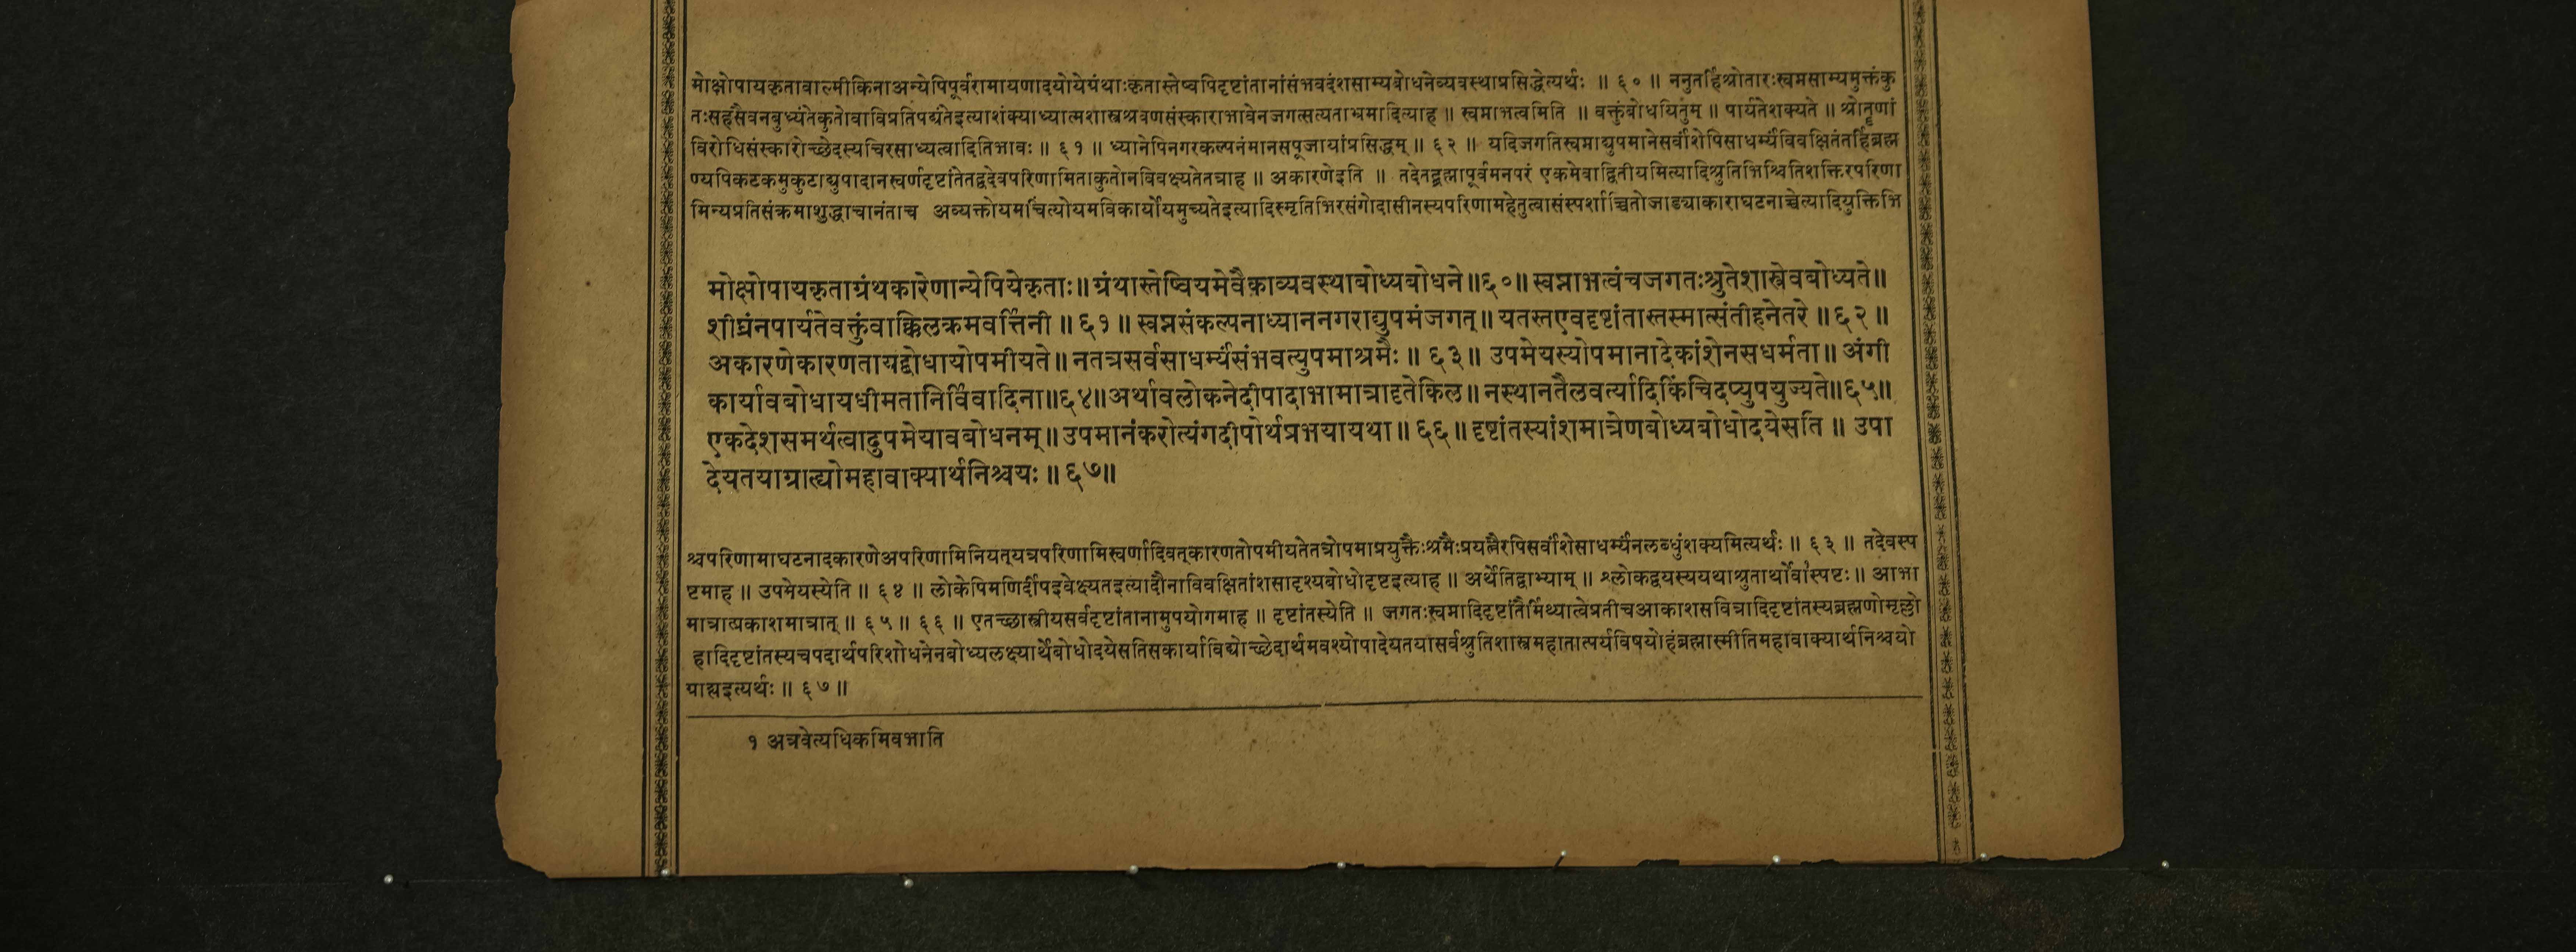 मोक्षोपायकृतावाल्मीकिनाअन्येपिपूर्वरामायणादयोयेग्रंथाःकृतास्तेष्वपिदृष्टांतानांसंभवदंशसाम्यबोधनेव्यवस्थाप्रसिद्धेत्यर्थः ॥ ६० ॥ ननुतर्हिश्रोतारःस्वप्नसाम्यमुक्तंकु
तःसहसैवनबुध्यंतेकुतोवाविप्रतिपद्यंतेइत्याशंक्याध्यात्मशास्त्रश्रवणसंस्काराभावेनजगत्सत्यताभ्रमादित्याह ॥ स्वप्नाभत्वमिति ॥ वक्तुंबोधयितुम् ॥ पार्यतेशक्यते ॥ श्रोतॄणां
विरोधिसंस्कारोच्छेदस्यचिरसाध्यत्वादितिभावः ॥ ६१ ॥ ध्यानेपिनगरकल्पनंमानसपूजायांप्रसिद्धम् ॥ ६२ ॥ यदिजगतिस्वप्नाद्युपमानेसर्वांशेपिसाधर्म्यंविवक्षितंतर्हिब्रह्म
ण्यपिकटकमुकुटाद्युपादानस्वर्णदृष्टांतेतद्वदेवपरिणामिताकुतोनविवक्ष्यतेतत्राह ॥ अकारणेइति ॥ तदेतद्ब्रह्मापूर्वमनपरं एकमेवाद्वितीयमित्यादिश्रुतिभिश्चितिशक्तिरपरिणा
मिन्यप्रतिसंक्रमाशुद्धाचानंताच अव्यक्तोयमचिंत्योयमविकार्योयमुच्यतेइत्यादिस्मृतिभिरसंगोदासीनस्यपरिणामहेतुत्वासंस्पर्शाच्चितोजाड्याकाराघटनाच्चेत्यादियुक्तिभि
मोक्षोपायकृताग्रंथकारेणान्येपियेकृताः॥ ग्रंथास्तेष्वियमेवैकाव्यवस्थाबोध्यबोधने॥६०॥ स्वप्नाभत्वंचजगतःश्रुतेशास्त्रेवबोध्यते॥
शीघ्रंनपार्यतेवक्तुंवाक्किलक्रमवर्त्तिनी ॥ ६१ ॥ स्वप्नसंकल्पनाध्याननगराद्युपमंजगत्॥ यतस्तएवदृष्टांतास्तस्मात्संतीहनेतरे ॥ ६२ ॥
अकारणेकारणतायद्बोधायोपमीयते॥ नतत्रसर्वसाधर्म्यंसंभवत्युपमाश्रमैः ॥ ६३॥ उपमेयस्योपमानादेकांशेनसधर्मता॥ अंगी
कार्यावबोधायधीमतानिर्विवादिना॥६४॥अर्थावलोकनेदीपादाभामात्रादृतेकिल॥ नस्थानतैलवर्त्यादिकिंचिदप्युपयुज्यते॥६५॥
एकदेशसमर्थत्वादुपमेयावबोधनम्॥ उपमानंकरोत्यंगदीपोर्थप्रभयायथा॥ ६६॥ दृष्टांतस्यांशमात्रेणबोध्यबोधोदयेसति ॥ उपा
देयतयाग्राह्योमहावाक्यार्थनिश्चयः॥ ६७॥
श्चपरिणामाघटनादकारणेअपरिणामिनियत्यत्रपरिणामिस्वर्णादिवत्कारणतोपमीयतेतत्रोपमाप्रयुक्तैःश्रमैःप्रयत्नैरपिसर्वांशेसाधर्म्यंनलब्धुंशक्यमित्यर्थः ॥ ६३ ॥ तदेवस्प
ष्टमाह ॥ उपमेयस्येति ॥ ६४ ॥ लोकेपिमणिर्दीपइवेक्ष्यतइत्यादौनाविवक्षितांशसादृश्यबोधोदृष्टइत्याह ॥ अर्थेतिद्वाभ्याम् ॥ श्लोकद्वयस्ययथाश्रुतार्थोवा१स्पष्टः॥ आभा
मात्रात्प्रकाशमात्रात् ॥ ६५ ॥ ६६ ॥ एतच्छास्त्रीयसर्वदृष्टांतानामुपयोगमाह ॥ दृष्टांतस्येति ॥ जगतःस्वप्नादिदृष्टांतैर्मिथ्यात्वेप्रतीचआकाशसवित्रादिदृष्टांतस्यब्रह्मणोमृल्लो
हादिदृष्टांतस्यचपदार्थपरिशोधनेनबोध्यलक्ष्यार्थेबोधोदयेसतिसकार्याविद्योच्छेदार्थमवश्योपादेयतयासर्वश्रुतिशास्त्रमहातात्पर्यविषयोहंब्रह्मास्मीतिमहावाक्यार्थनिश्चयो
ग्राह्यइत्यर्थः ॥ ६७ ॥
१ अत्रवेत्यधिकमिवभाति